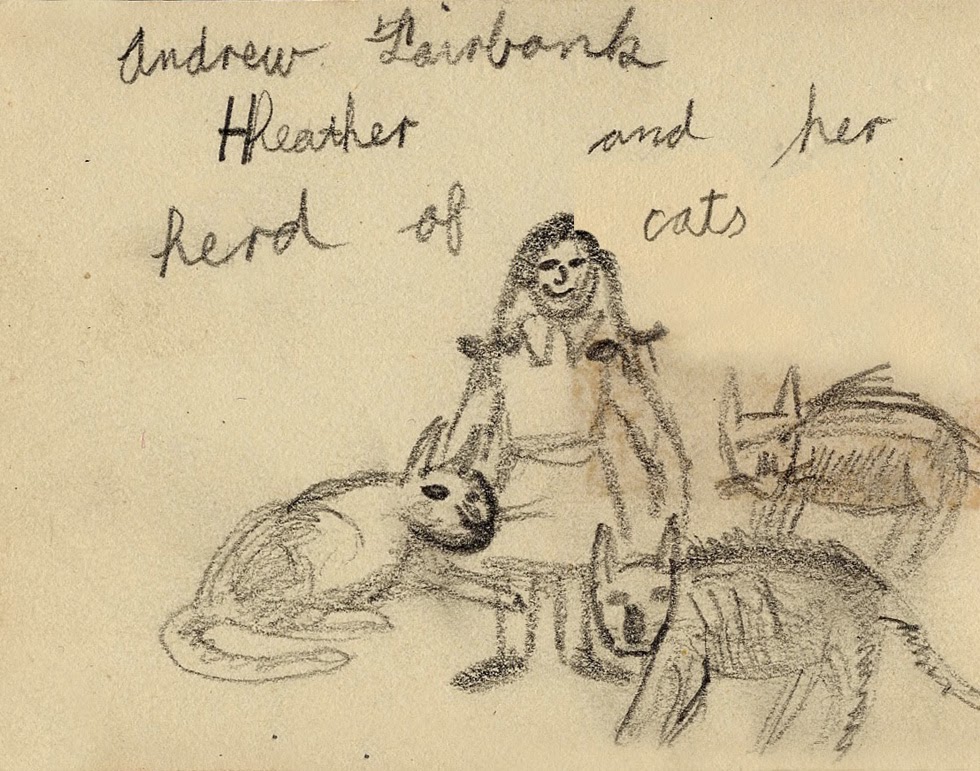 Andrew Fairbank
Heather and her
herd of cats